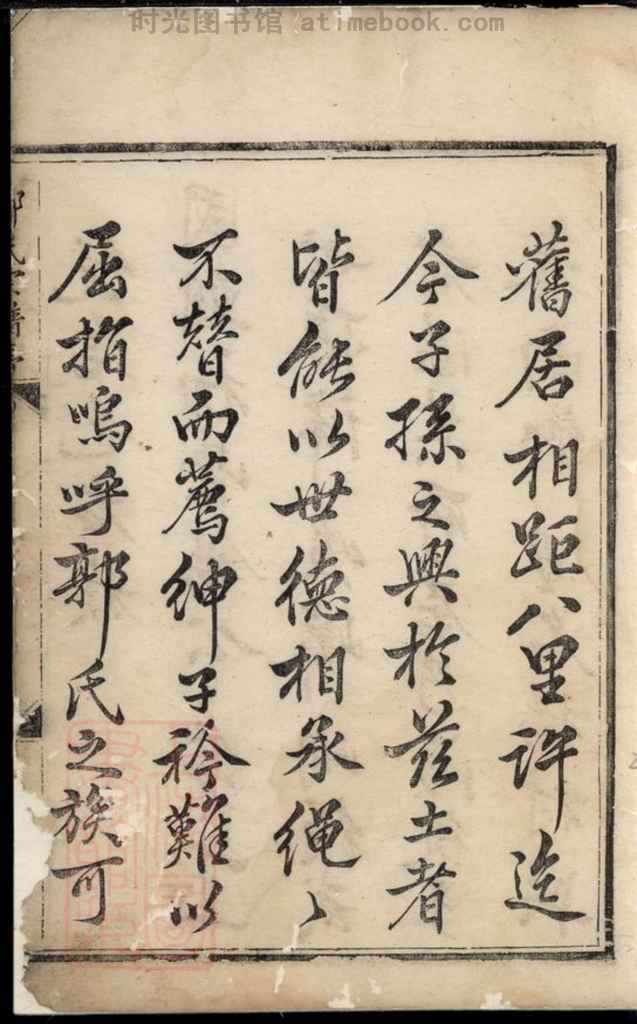 时光图书馆 atimebook.com
舊居相距八里許迄
今子孫之興於茲土者
皆能以世德相承繩〻
不替而薦紳子衿難以
屈指嗚呼郭氏之族可